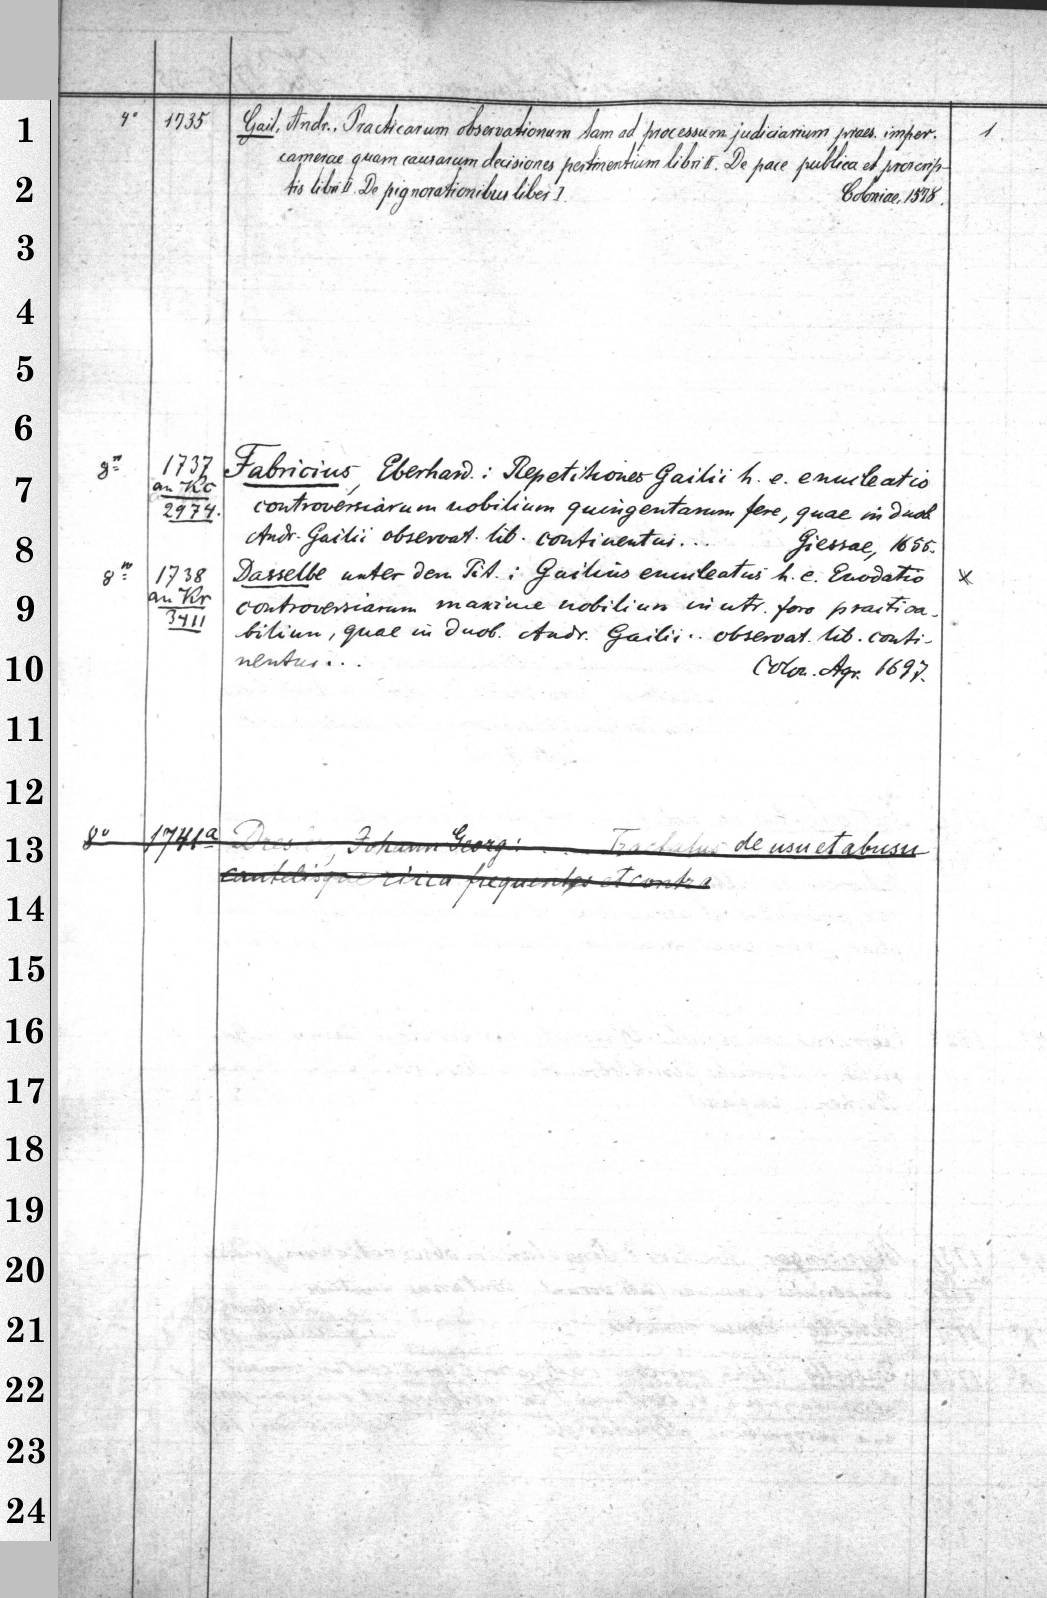 1
4° 1735 Gail, Andr., Practicarum observationum tam ad processum judiciarium praes. imper.
camerae quam causarum decisiones pertinentium libri II. De pace publica et proscrip-
2
tis libri II. De pignorationibus liber I. Coloniae, 1578.
1
3
4
5
6
8° 1737 Fabricius, Eberhard.: Repetitiones Gailii h. e. enucleatio
7
an Kc controversiarum nobilium quingentarum fere, quae in duob
2974. Andr. Gailii observat. lib. continentur... Giessae, 1655.
8
8° 1738 Dasselbe unter dem Tit.: Gailius enucleatus h. e. Enodatio x
an Kr controversiarum maxime nobilium in utr. foro practica-
9
3411 bilium, quae in duob. Andr. Gailii.. observat. lib. conti-
10
nentur... Colon. Agr. 1697.
11
12
8° 1741a Johann Georg: ... Tractatus de usu et abusu
13
cautelisque circa frequentes et contra
14
15
16
17
18
19
20
21
22
23
24